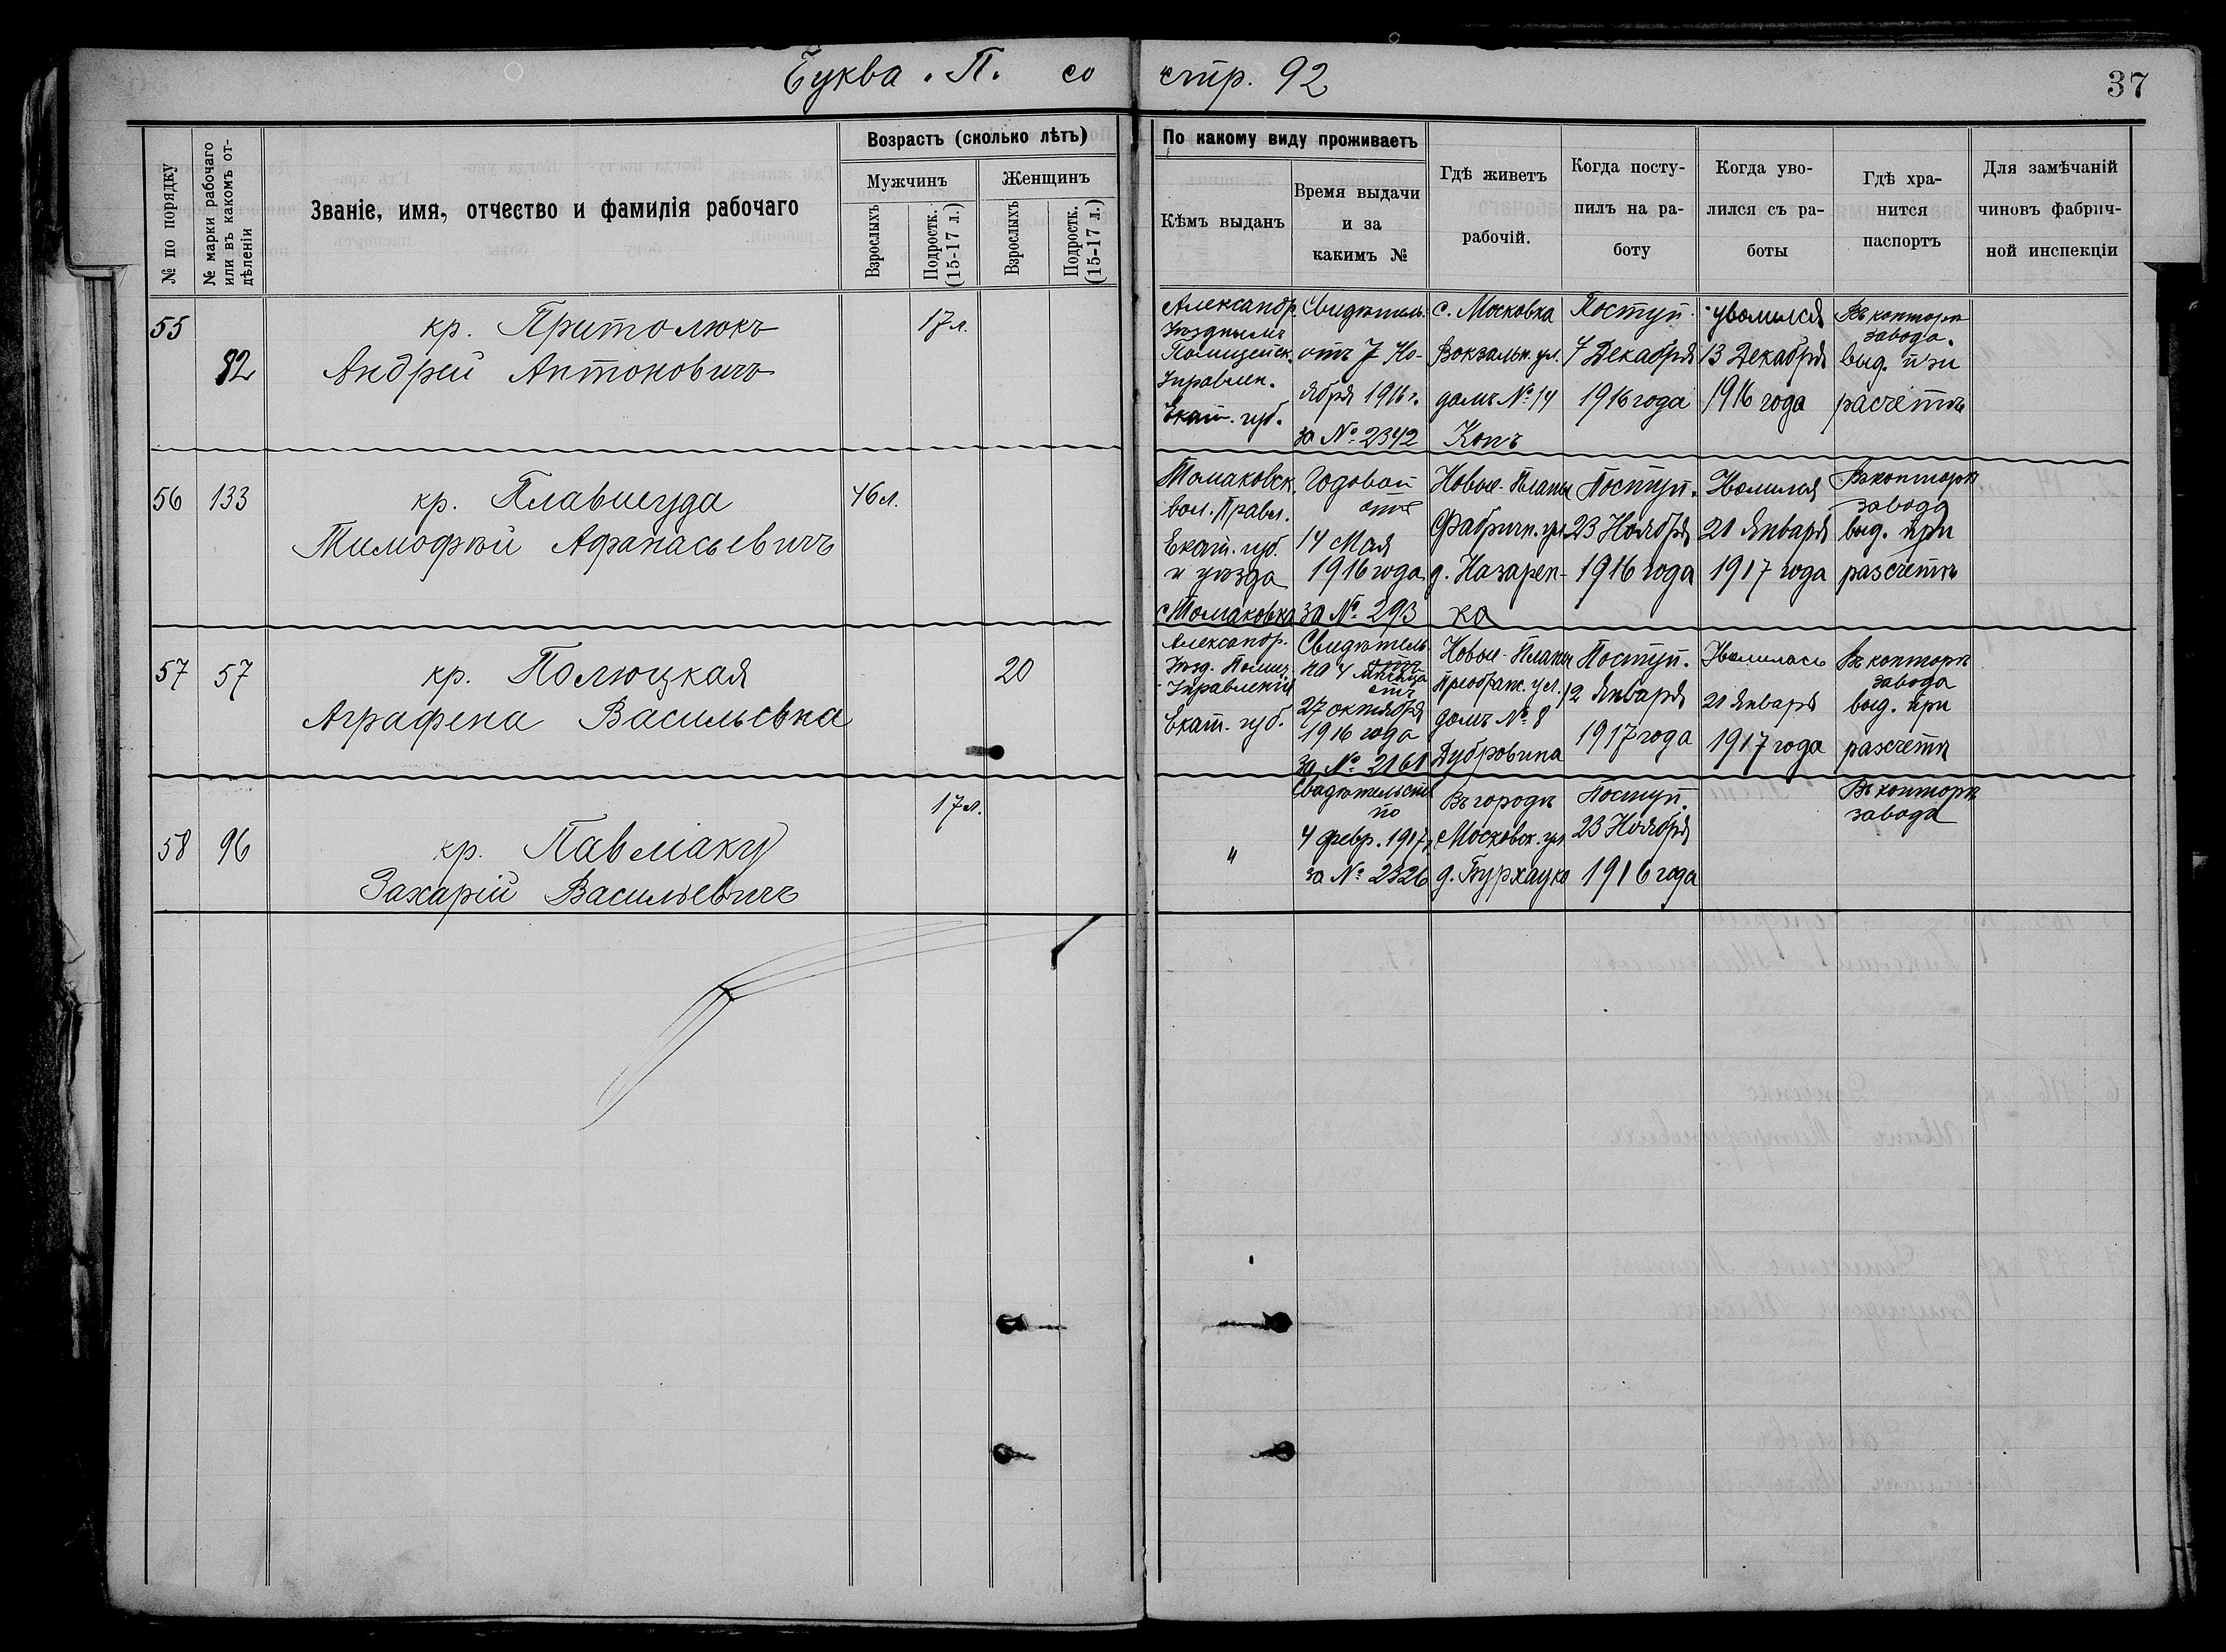 Буква "П" со стр. 92
37
№ по порядку
№ марки рабочаго или въ какомъ от-дѣленіи
Званіе, имя, отчество и фамилія рабочаго
Возрастъ (сколько лѣтъ)
Мужчинъ
Женщинъ
Взрослыхъ
Подростк. (15-17 л.)
Взрослыхъ
Подростк. (15-17 л.)
По какому виду проживаетъ
Кѣмъ выданъ
Время выдачи
и за
какимъ №
Гдѣ живетъ
рабочій.
Когда посту-
пилъ на ра-
боту
Когда уво-
лился съ ра-
боты
Гдѣ хра-
нится
паспортъ
Для замѣчаній
чиновъ фабрич-
ной инспекціи
55
82
кр. Притолюкъ
Андрей Антоновичъ
17 л.
Александр.
Уѣзднымъ
Полицейск.
Управлен.
Екат. губ.
Свидѣтель.
отъ 7 Но-
ября 1916 г.
за № 2342
с. Московка
Вокзальн. ул.
домъ № 14
Копъ
Поступ.
7 Декабря
1916 года
уволился
13 Декабря
1916 года
Въ конторѣ
завода.
выд. при
расчетѣ
56
133
кр. Плавшуда
Тимофѣй Афанасьевичъ
46 л.
Томаковск.
вол. Правл.
Екат. губ.
и уѣзда
с Томаковка
Годовой
отъ
14 Мая
1916 года
за № 293
Новые-Планы
Фабричн. ул.
д. Назарен-
ка
Поступ.
23 Ноября
1916 года
Уволился
21 Января
1917 года
Въ конторѣ
завода
выд. при
разсчетѣ
57
57
кр. Полюцкая
Аграфена Васильевна
20
Александр.
Уѣзд. Полиц.
Управленій
Екат. губ.
Свидѣтель
на 4 мѣсяца
отъ
27 октября
1916 года
за № 2161
Новые-Планы
Преображ. ул.
домъ № 8
Дубровина
Поступ.
12 Января
1917 года
Уволилась
21 Января
1917 года
Въ конторѣ
завода
выд. при
разсчетѣ
58
96
кр. Павліаку
Захарій Васильевичъ
17 л.
"
Свидѣтельств
по
4 февр. 1917 г.
за № 2326
Въ городѣ
Московск. ул.
д. Бурхацко
Поступ.
23 Ноября
1916 года
Въ конторѣ
завода